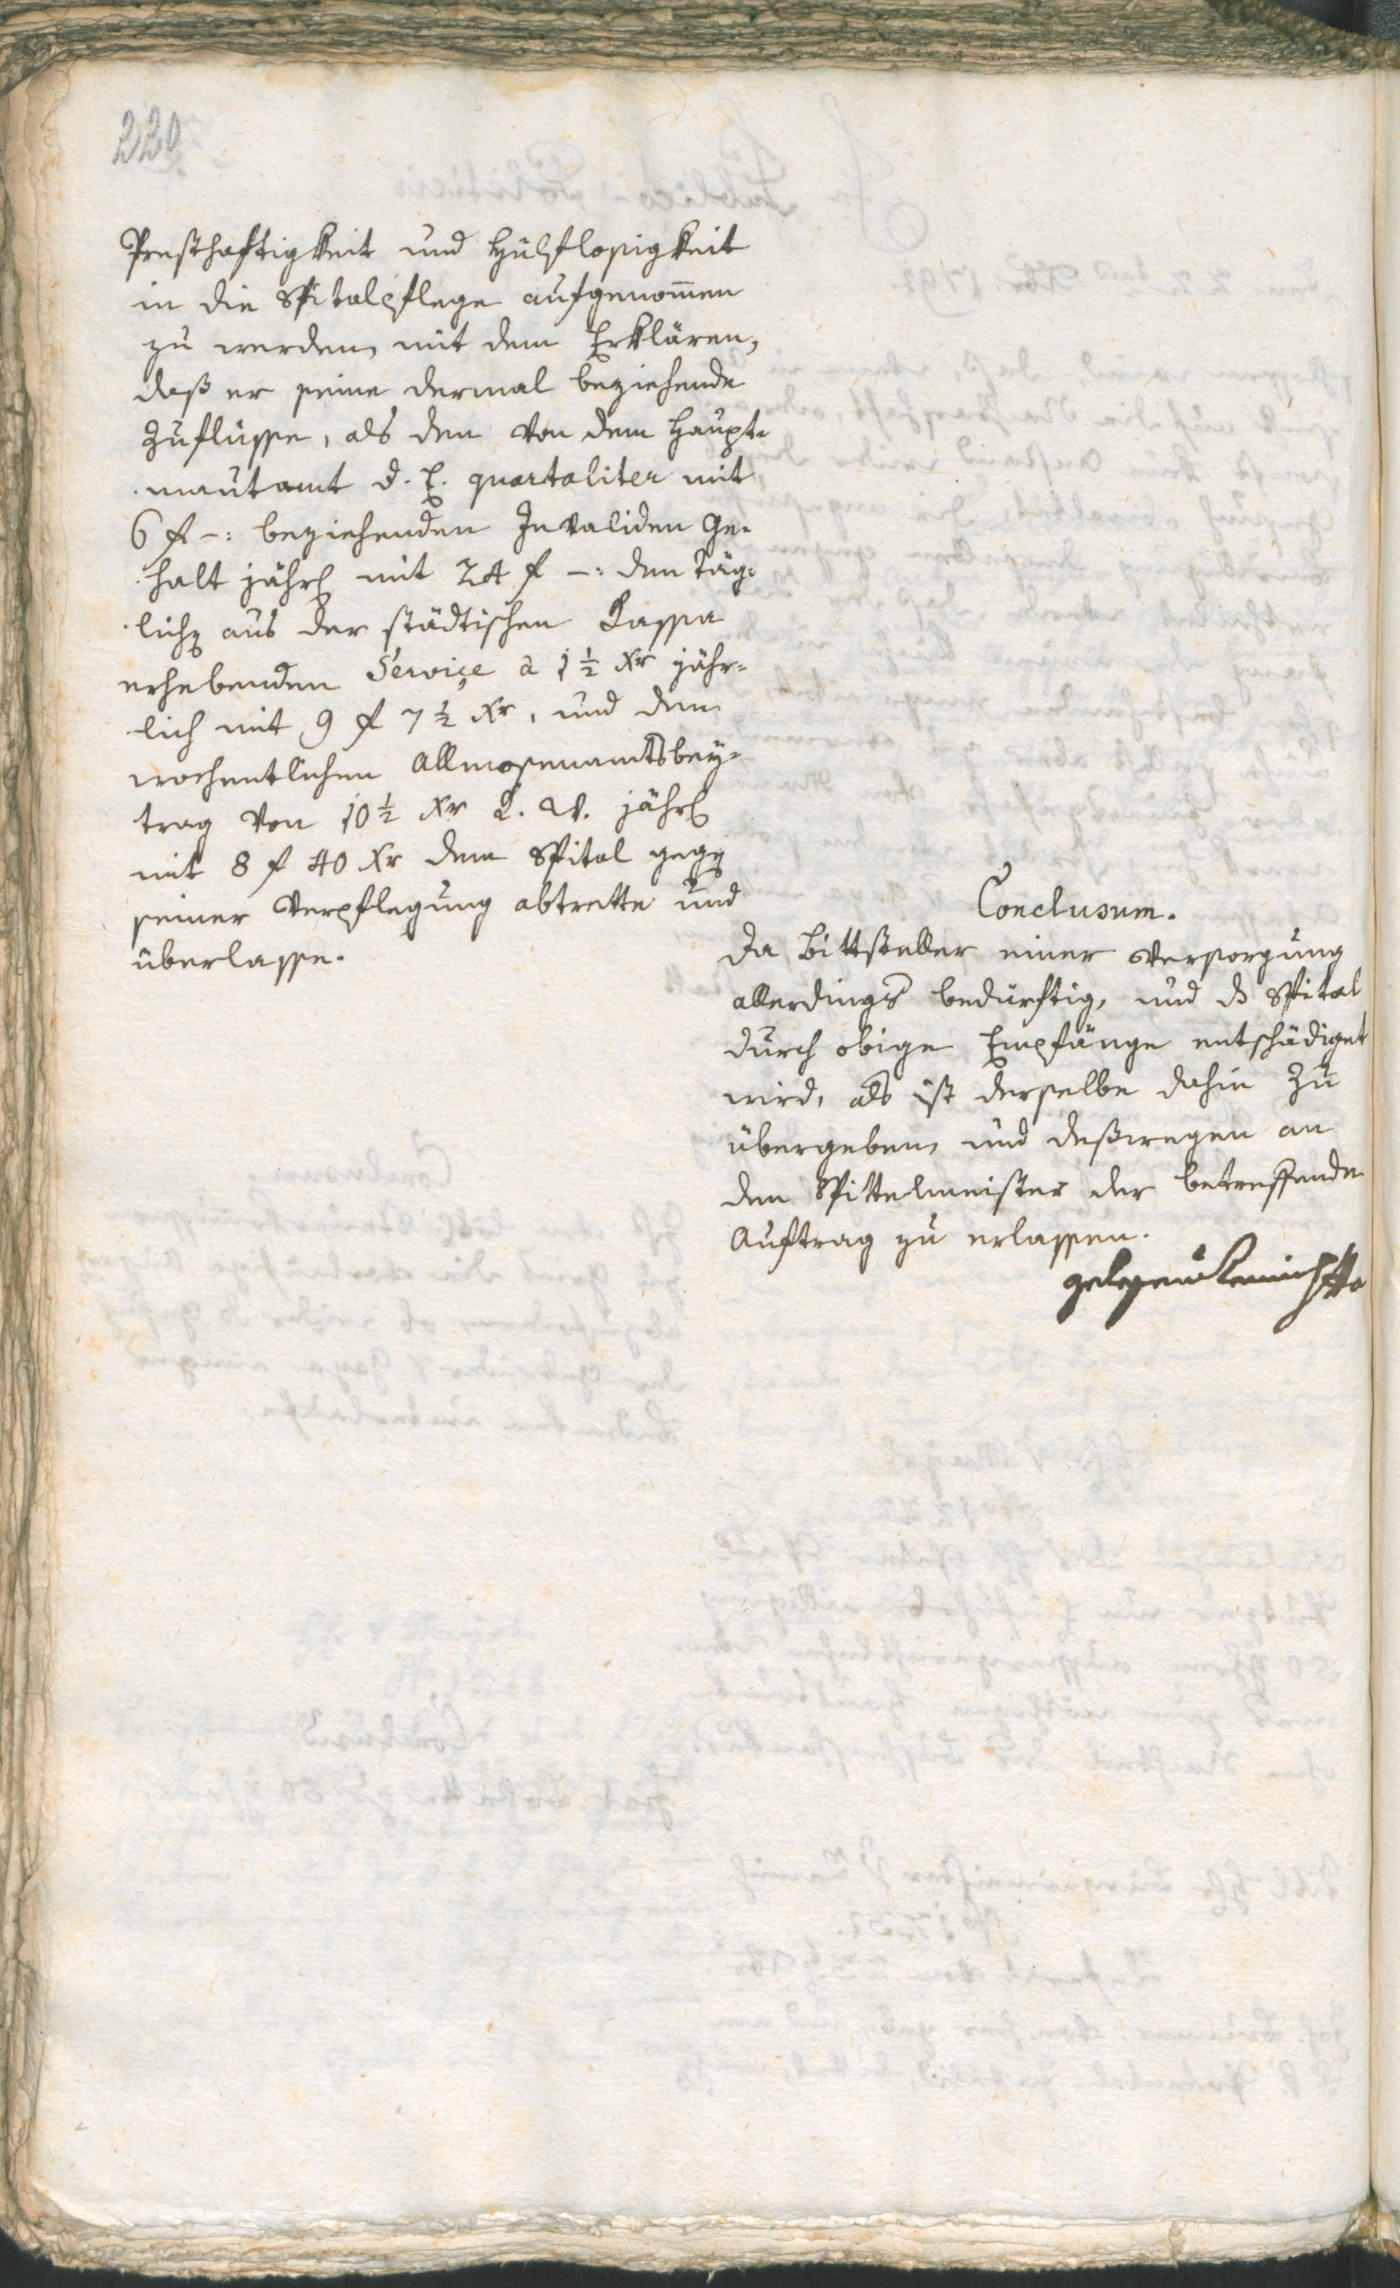 220
Presthaftigkeit und Hülflosigkeit
in die Spitalpflege aufgenom̅en
zu werden, mit dem Erklären,
daß er seine dermal beziehende
Zuflüsse, als den von dem Haupt¬
mautamt d. E. quartaliter mit
6 f –: beziehenden Invaliden Ge¬
halt jährl mit 24 f –: den täg¬
lich aus der städtischen Kassa
erhebenden Serviçe à 1½ Xr jähr¬
lich mit 9 f 7½ Xr, und dem
wochentlichen Allmosenamtsbey¬
trag von 10½ Xr R. W. jährl
mit 8 f 40 Xr dem Spital gegen
seiner Verpflegung abtrette und
überlasse.
Conclusum.
Da Bittsteller einer Versorgung
allerdings bedürftig, und ds Spital
durch obige Empfänge entschädiget
wird, als ist derselbe dahin zu
übergeben, und deßwegen an
den Spittelmeister der betreffende
Auftrag zu erlassen.
gelesen